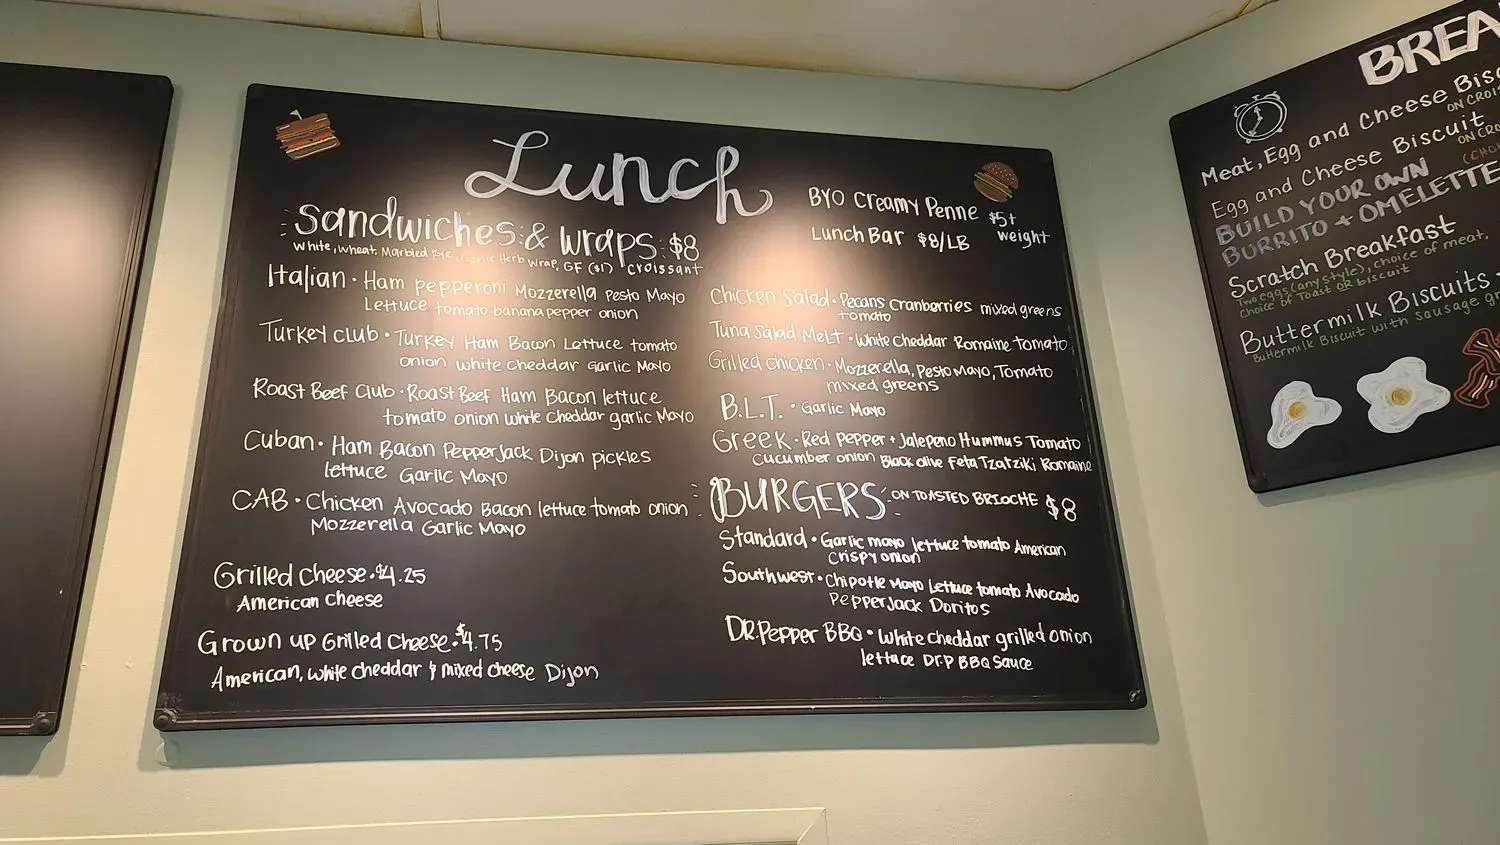 Lunch
Sandwiches & Wraps $8
White, Wheat, Marbled Rye, Herb Wrap, GF ($1) Croissant
Italian · Ham pepperoni Mozzerella Pesto Mayo
Lettuce tomato banana pepper onion
Turkey Club · Turkey Ham Bacon Lettuce tomato
onion white cheddar Garlic Mayo
Roast Beef Club · Roast Beef Ham Bacon lettuce
tomato onion white cheddar garlic Mayo
Cuban · Ham Bacon PepperJack Dijon pickles
lettuce Garlic Mayo
CAB · Chicken Avocado Bacon lettuce tomato onion
Mozzerella Garlic Mayo
Grilled Cheese · $4.25
American Cheese
Grown up Grilled Cheese · $4.75
American, white cheddar & mixed cheese Dijon
BYO Creamy Penne $5+
weight
Lunch Bar $8/LB
Chicken Salad · Pecans Cranberries mixed greens
tomato
Tuna Salad Melt · White Cheddar Romaine Tomato
Grilled chicken · Mozzerella, Pesto Mayo, Tomato
mixed greens
B.L.T. · Garlic Mayo
Greek · Red Pepper + Jalepeno Hummus Tomato
Cucumber onion Black olive Feta Tzatziki Romaine
BURGERS ON TOASTED BRIOCHE $8
Standard · Garlic mayo lettuce tomato American
Crispy onion
Southwest · Chipotle Mayo Lettuce tomato Avocado
PepperJack Doritos
DR.Pepper BBQ · White cheddar grilled onion
lettuce Dr.P BBQ Sauce
BREA
Meat, Egg and Cheese Bisc
ON CROIS
Egg and Cheese Biscuit
ON CRO
BUILD YOUR OWN
(CHO
BURRITO + OMELETTE
Scratch Breakfast
Two eggs (any style), choice of meat,
choice of Toast OR biscuit
Buttermilk Biscuits
Buttermilk Biscuit with sausage gr